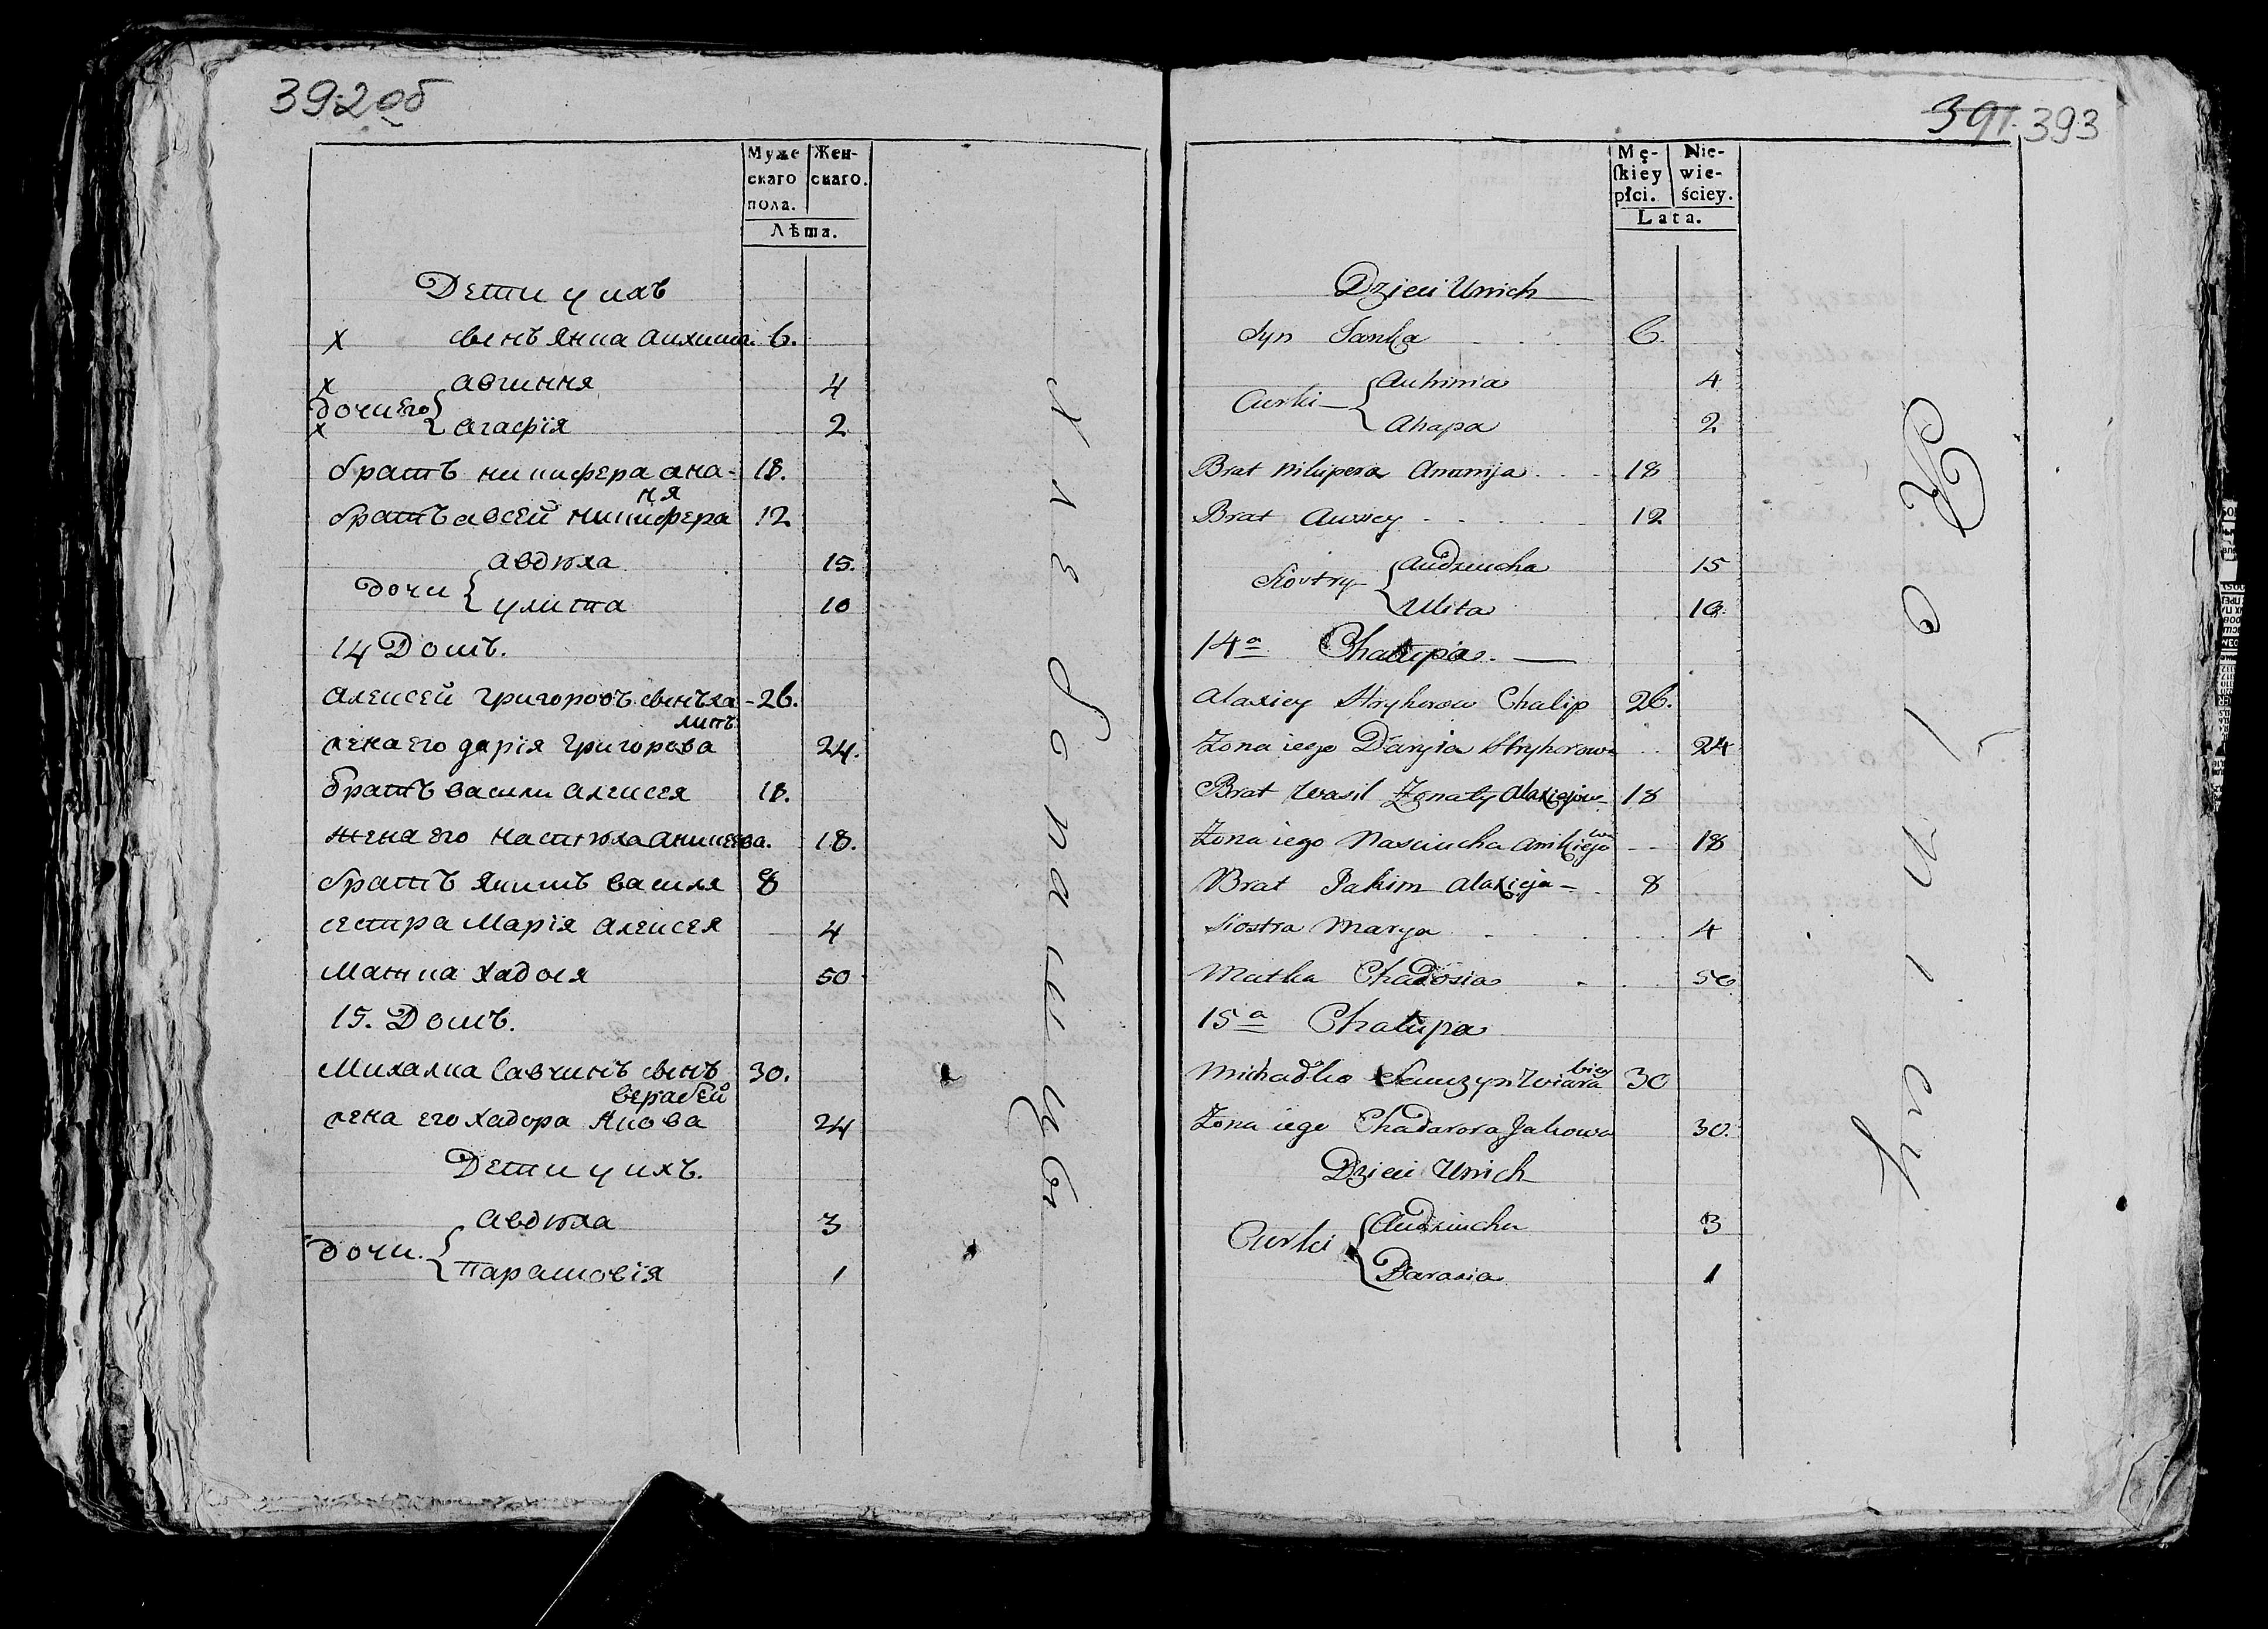 392об
Муже
скаго
пола.
Жен-
скаго.
Лѣта.
Дети у ихъ
х сынъ Янка Аихим. 6.
х Авгиння 4
дочи его
х Агафія 2
братъ никифера ана- 18.
ня
братъ авсей никифера 12
Авдюха 15.
дочи
улита 10
14 Домъ.
Алексей Григоровъ сынъ ха- 26.
липъ
жена его дарія Григорова 24.
братъ васили Алексея 18.
жена его настюха аникеева. 18.
братъ Якимъ василя 8
сестра Марія Алексея 4
Матка Хадося 50
15. Домъ.
Михалка Савчинъ сынъ 30.
верабей
жена его хадора Якова 24
Дети у ихъ.
Авдюха 3
дочи.
Парасковія 1
391. 393
Mę-
skiey
płci.
Nie-
wie-
ściey.
Lata.
Dzieci Unich
Syn Janka 6
Auhinia 4
Curki
Ahapa 2
Brat Nikipera Ananija 18
Brat Auxiey 12
Audziucha 15
Siostry
Ulita 10
14a Chałupa.
Alaxiey Hryhorow Chalip 26.
Żona iego Daryia Hryhorowa 24
Brat Wasil Żonaty Alaxiejow 18
wa
Żona iego Nasciucha Anikiejo 18
Brat Jakim Alaxieja 8
Siostra Marya 4
Matka Chadosia 50
15a Chałupa
biey
Michałko Sauczyn Wiara 30
Żona iego Chadarora Jakowa 30.
Dzieci Unich
Audziucha 3
Curki
Parasia 1